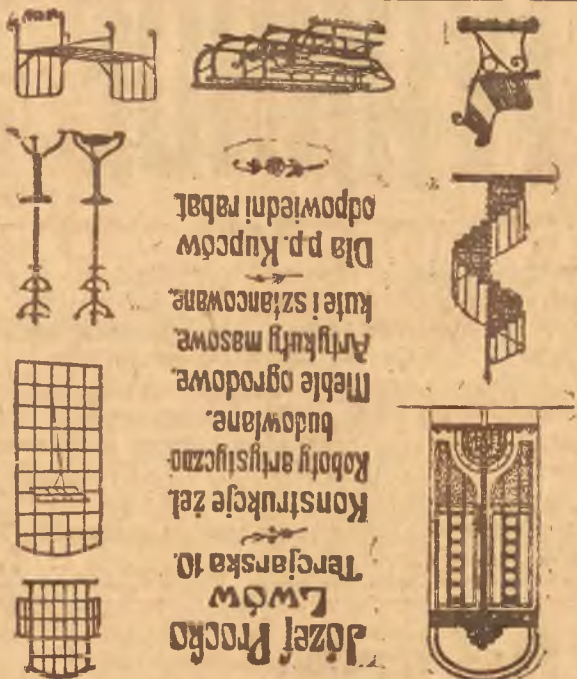 Józef Procko
Lwów
Tercjarska 10.
Konstrukcje żel.
Roboty artystyczno-
budowlane.
Meble ogrodowe.
Artykuły masowe,
kute i sztancowane.
Dla pp. Kupców
odpowiedni rabat